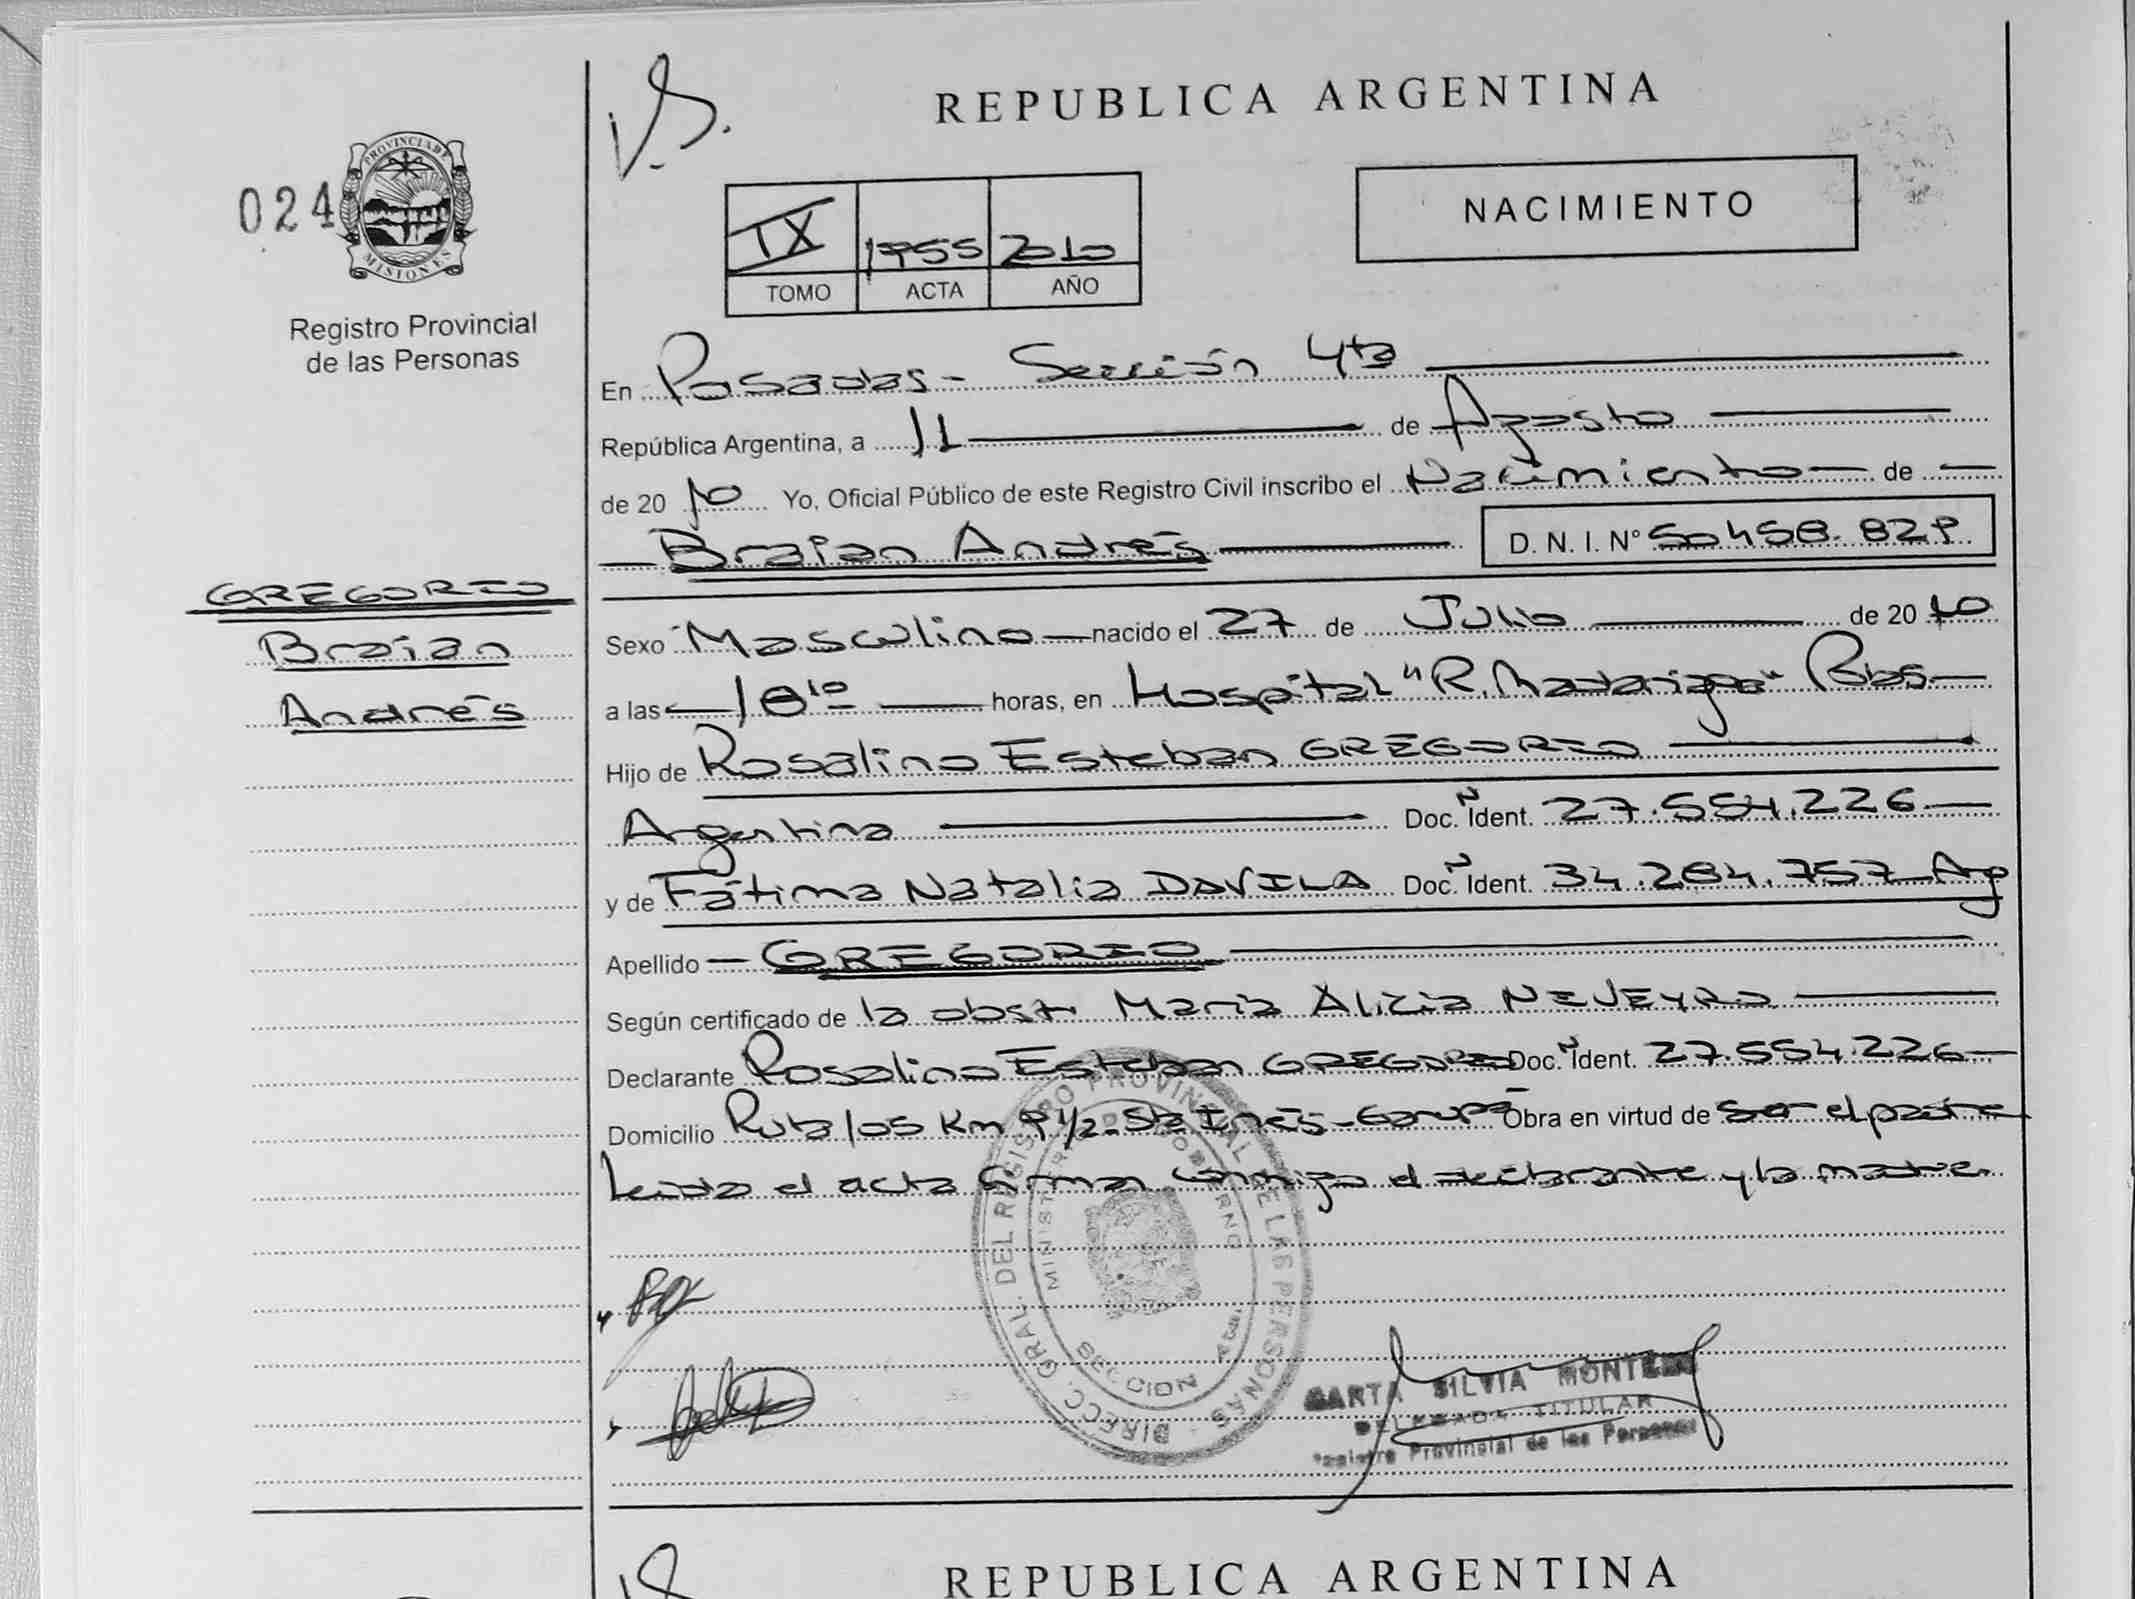 V.S.
REPUBLICA ARGENTINA
024
PROVINCIA DE
MISIONES
Registro Provincial
de las Personas
IX 1955 2010
TOMO ACTA AÑO
NACIMIENTO
En Posadas - Sección 4ta
República Argentina, a 11 de Agosto
de 20 10 Yo, Oficial Público de este Registro Civil inscribo el Nacimiento de
Braian Andrés D. N. I. N° 50458.829
GREGORIO
Braian
Andrés
Sexo Masculino nacido el 27 de Julio de 20 10
a las 18 10 horas, en Hospital "R. Madariaga" Pdas
Hijo de Rosalino Esteban GREGORIO
Argentina Doc. N Ident. 27.554.226
y de Fátima Natalia DAVILA Doc. N Ident. 34.284.757 Arg
Apellido GREGORIO
Según certificado de la obst. María Alicia NEVEYRO
Declarante Rosalino Esteban GREGORIO Doc. N Ident. 27.554.226
Domicilio Ruta 105 Km 9 1/2 - Sta Inés - Garupá Obra en virtud de Ser el padre
Leída el acta firman conmigo el declarante y la madre
DIRECC. GRAL. DEL REGISTRO PROVINCIAL DE LAS PERSONAS
MINISTERIO DE GOBIERNO
SECCION 4ta.
SILVIA MONTERO
DELEGADA TITULAR
Registro Provincial de las Personas
REPUBLICA ARGENTINA